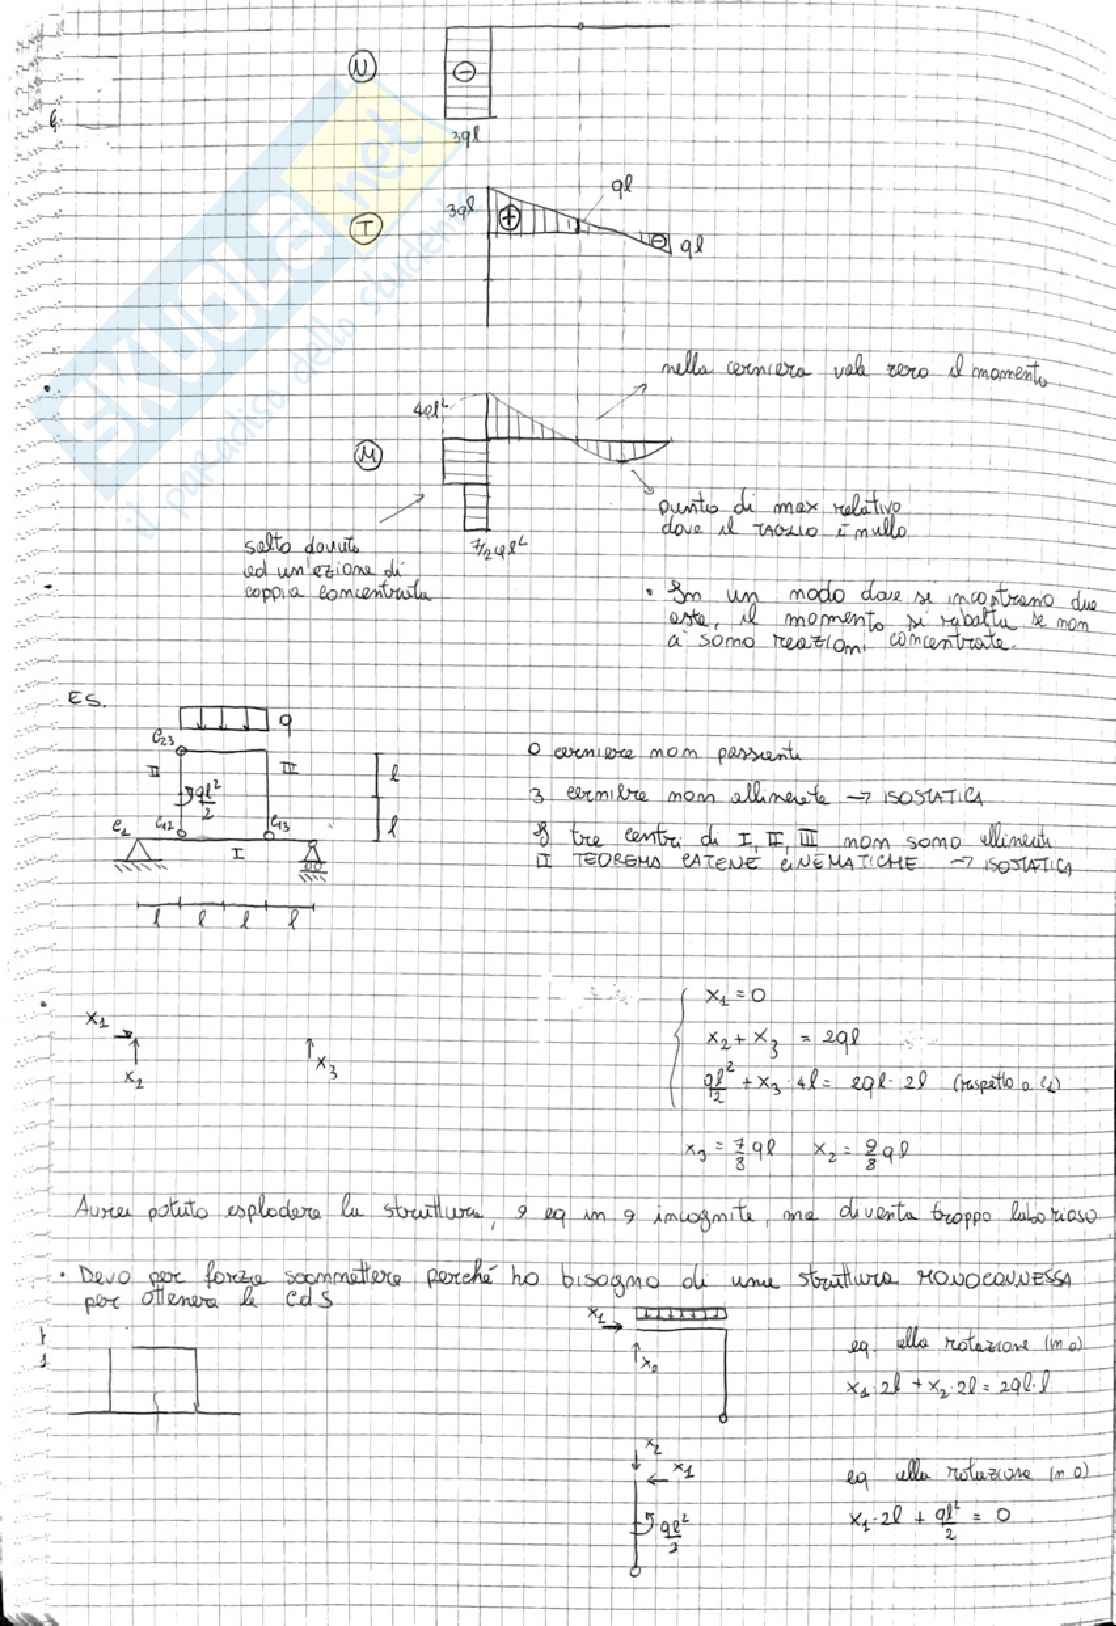 N
⊖
3ql
ql
3ql
T
⊕
⊖
ql
nella cerniera vale zero il momento
4ql²
M
punto di max relativo
dove il TAGLIO è nullo
salto dovuto
ad un'azione di
coppia concentrata
7/2 ql²
• In un nodo dove si incontrano due
aste, il momento si ribalta se non
ci sono reazioni concentrate.
SKUOLA.net
il paradiso dello studente
ES.
q
C23
II
III
ql²/2
l
l
C1
C12
C13
I
l l l l
0 cerniere non passanti
3 cerniere non allineate → ISOSTATICA
I tre centri di I, II, III non sono allineati
II TEOREMA CATENE CINEMATICHE → ISOSTATICA
X1
X2
X3
X1 = 0
X2 + X3 = 2ql
ql²/2 + X3 · 4l = 2ql · 2l (rispetto a C1)
X3 = 7/8 ql X2 = 9/8 ql
Avrei potuto esplodere la struttura, 9 eq in 9 incognite, ma diventa troppo laborioso
• Devo per forza sconnettere perché ho bisogno di una struttura MONOCONNESSA
per ottenere le CdS
X1
X2
eq alla rotazione (in O)
X1·2l + X2·2l = 2ql·l
X2
X1
ql²/2
eq alla rotazione (in O)
X1·2l + ql²/2 = 0